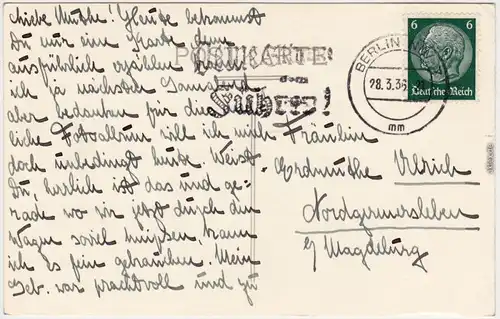 Liebe Muthe! Heute bekommst
Du nur eine Karte, denn
ausführlich erzählen kann
ich ja nächsten Sonnabend,
aber bedanken für die
liche Fotoalbum will ich mich
doch unbedingt heute. Weist
Du, herrlich ist das und ge-
rade wo wir jetzt durch den
Wagen soviel knipsen, kann
ich es fein gebrauchen. Mein
Geb. war prachtvoll und zu
POSTKARTE
dem
Führer!
BERLIN
28.3.36
mm
6 6
Deutsches Reich
Fräulein
Erdmuthe Ulrich
Nordgermersleben
b/ Magdeburg